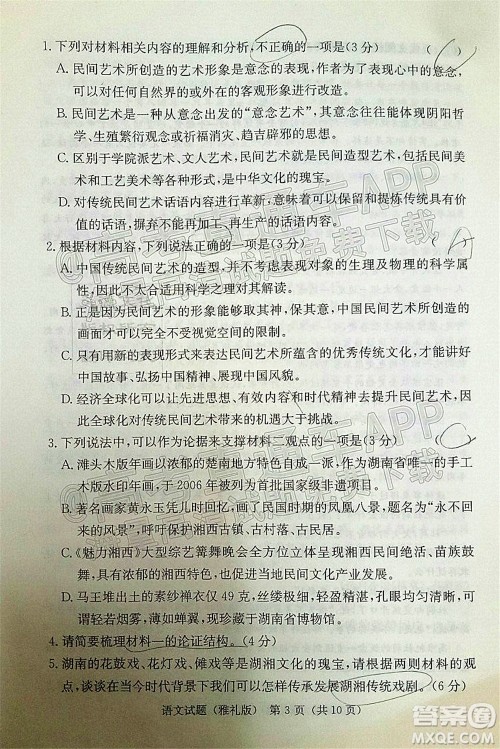 1. 下列对材料相关内容的理解和分析,不正确的一项是(3分) ( )
A. 民间艺术所创造的艺术形象是意念的表现,作者表现心中的意念,
可以对任何自然界或人世间的物象进行加工改造。
B. 民间艺术是一种从意念出发的“意念艺术”,其主题往往体现阴阳哲
学、生殖繁衍观念或祈福消灾、趋吉辟邪的思想。
C. 区别于学院派艺术、文人艺术,民间艺术就是民间造型艺术,包括美
术和工艺美术等各种形式,是中华文化的瑰宝。
D. 对传统民间艺术的话语内容进行革新,意味着可以保留和提炼传统具有价
值的话语,摒弃不能再加工、再生产的话语内容。
2. 根据材料内容,下列说法正确的一项是(3分) (A)
A. 中国传统民间艺术的造型,并不考虑表现对象的生理及物理的科学属
性,因此大体不合适用科学之理对其解读。
B. 正是因为民间艺术的形象能够取其神,保其意,中国民间艺术所创造的
画面才可以完全不受视觉空间的限制。
C. 只有用新的表现形式来表达民间艺术所蕴含的优秀传统文化,才能讲好
中国故事、弘扬中国精神、展现中国风貌。
D. 经济全球化可以让先进思想、优秀文化快速广泛传播、碰撞提升,因
此全球化给传统民间艺术带来的机遇大于挑战。
3. 下列说法中,可以作为论据来支撑材料二观点的一项是(3分)
A. 滩头木版年画以浓郁的楚南地方特色自成一派,作为湖南省唯一的手工
木版水印年画,于2006年被列为首批国家级非遗项目。
B. 著名画家黄永玉凭几时回忆,画出了民国时期的凤凰八景,题为“永不回
来的风景”,呼吁保护湘西古镇、古村落、古民居。
C.《魅力湘西》大型综艺篝舞晚会创意展示湘西神秘文化、苗族鼓
舞,具有浓郁的湘西特色,也促进了当地民间文化产业化发展。
D. 马王堆出土的素纱禅衣仅49克,丝缕极细,轻盈精湛,孔眼均匀清晰,可
谓轻若烟雾,薄如蝉翼,现珍藏于湖南省博物馆。
4. 请简要梳理材料一的论证结构。(4分)
5. 湖南的花鼓戏、花灯戏、傩戏等是湖湘文化的瑰宝,请根据两则材料的观
点,谈谈在当今时代背景下我们可以怎样传承发展湖湘传统戏剧。(6分)
语文试题(雅礼版) 第3页(共10页)
答案圈